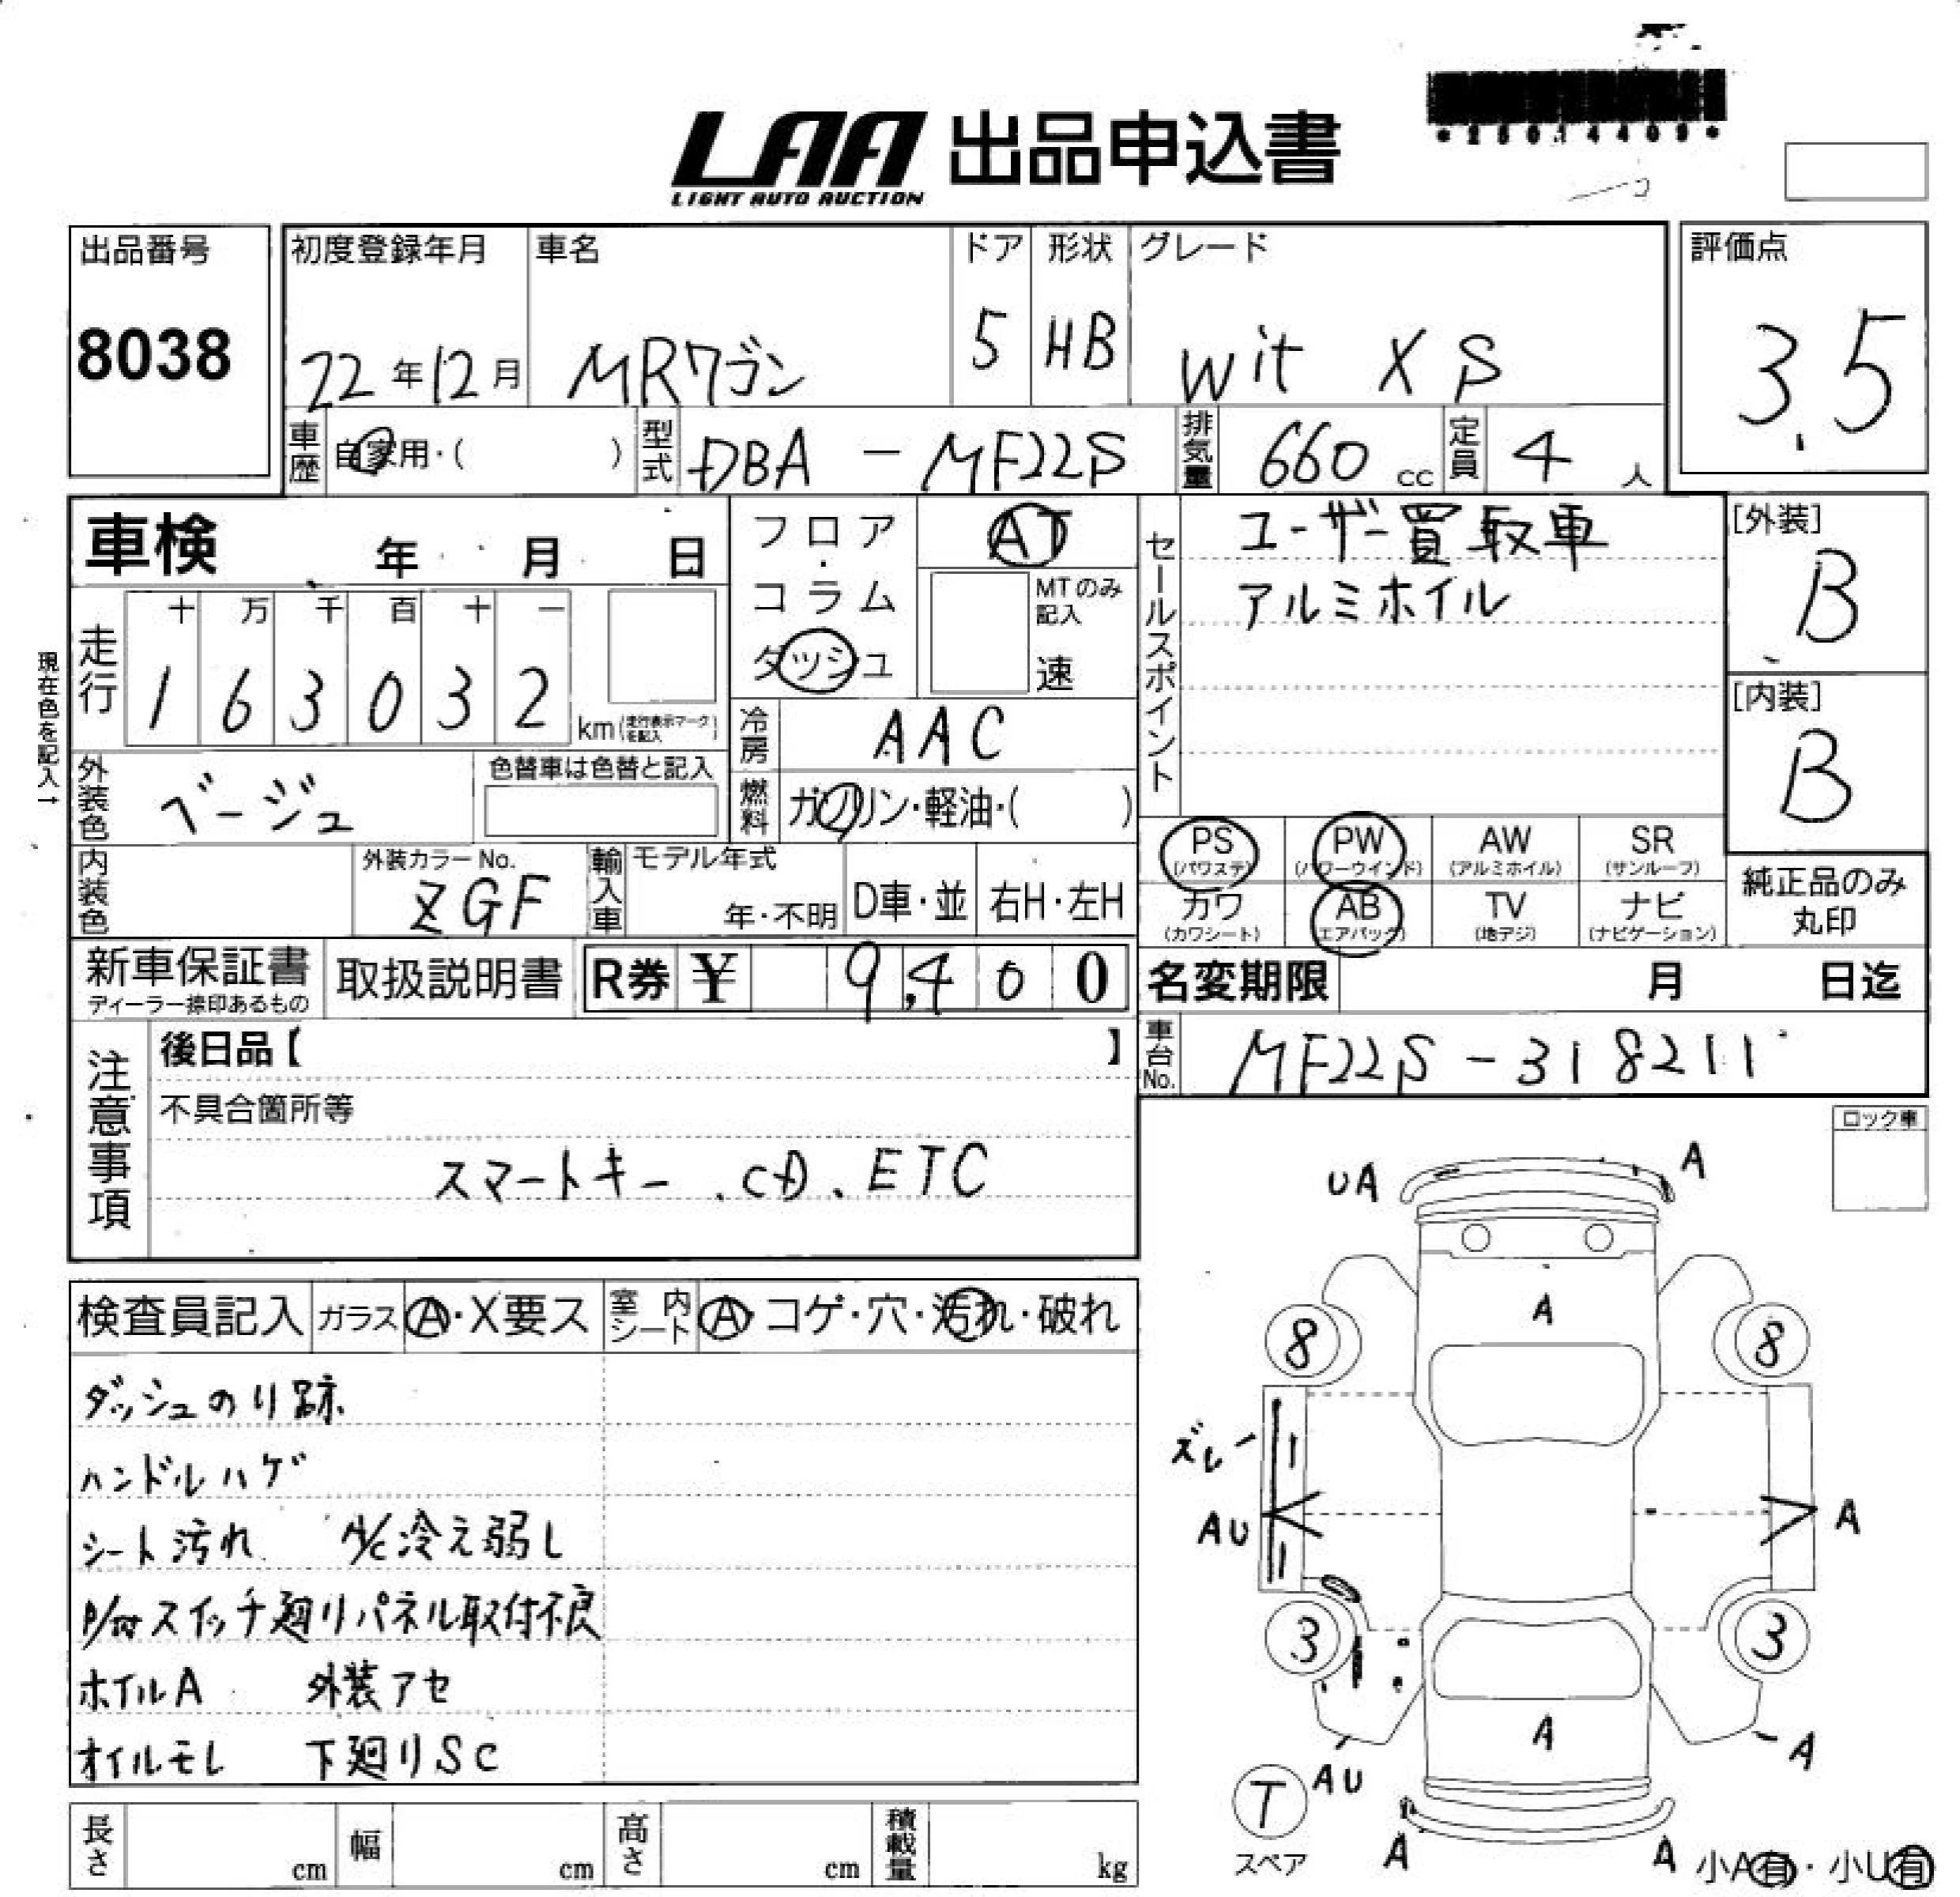 *25014409*
LAA 出品申込書
LIGHT AUTO AUCTION
出品番号
8038
初度登録年月
22年12月
車名
MRワゴン
ドア
5
形状
HB
グレード
wit XS
評価点
3.5
車歴
自家用・( )
型式
DBA - MF22S
排気量
660 cc
定員
4 人
車検 年 月 日
フロア・コラム
ダッシュ
AT
MTのみ
記入
速
セールスポイント
ユーザー買取車
アルミホイル
[外装]
B
[内装]
B
現在色を記入→
走行
十 万 千 百 十 一
1 6 3 0 3 2
km (走行表示マークを記入)
冷房
AAC
燃料
ガソリン・軽油・( )
外装色
ベージュ
色替車は色替と記入
内装色
外装カラーNo.
ZGF
輸入車
モデル年式
年・不明
D車・並
右H・左H
PS
(パワステ)
PW
(パワーウインド)
AW
(アルミホイル)
SR
(サンルーフ)
カワ
(カワシート)
AB
(エアバック)
TV
(地デジ)
ナビ
(ナビゲーション)
純正品のみ
丸印
新車保証書
ディーラー捺印あるもの
取扱説明書
R券 ¥ 9,400
名変期限 月 日迄
車台No.
MF22S - 318211
注意事項
後日品【 】
不具合箇所等
スマートキー . CD . ETC
ロック車
検査員記入
ガラス
A・X要ス
室内シート
A・コゲ・穴・汚れ・破れ
ダッシュのり跡
ハンドルハゲ
シート汚れ A/C冷え弱し
P/Wスイッチ廻りパネル取付不良
ホイルA 外装アセ
オイルモレ 下廻りSC
UA
A
A
8
8
ズレ
AU
A
3
3
A
A
AU
T
スペア
A
A
小A有・小U有
長さ cm
幅 cm
高さ cm
積載量 kg